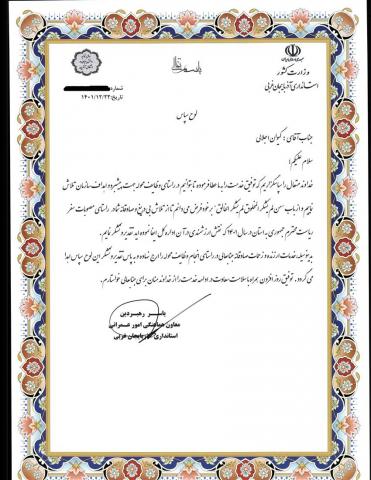 باسمه تعالی
وزارت کشور
استانداری آذربایجان غربی
شماره:
تاریخ: ۱۴۰۱/۱۲/۲۲
لوح سپاس
جناب آقای : کیوان اجلالی
سلام علیکم؛
خداوند متعال را سپاسگزاریم که توفیق خدمت را به ما عطا فرموده تا بتوانیم در راستای وظایف محوله جهت پیشبرد اهداف سازمان تلاش
نماییم و از باب "من لم یشکر المخلوق لم یشکر الخالق" بر خود فرض می دانم تا از تلاش بی دریغ و صادقانه شما در راستای مصوبات سفر
ریاست محترم جمهوری به استان در سال ۱۴۰۱ که نقش ارزشمندی در آن اداره کل ایفا نموده اید تقدیر و تشکر نمایم.
بدینوسیله خدمات ارزنده و زحمات صادقانه جنابعالی در راستای انجام وظایف محوله را ارج نهاده و به پاس تقدیر و تشکر این لوح سپاس اهدا
می گردد. توفیق روز افزون همراه با سلامت و سعادت در ادامه خدمت را از خداوند منان برای جنابعالی خواستارم.
رهبردین
معاون هماهنگی امور عمرانی
استانداری آذربایجان غربی